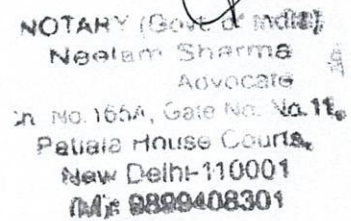 NOTARY (Govt of India)
Neelam Sharma
Advocate
No. 165A, Gate No. No. 11,
Patiala House Courts,
New Delhi-110001
(M): 9899408301